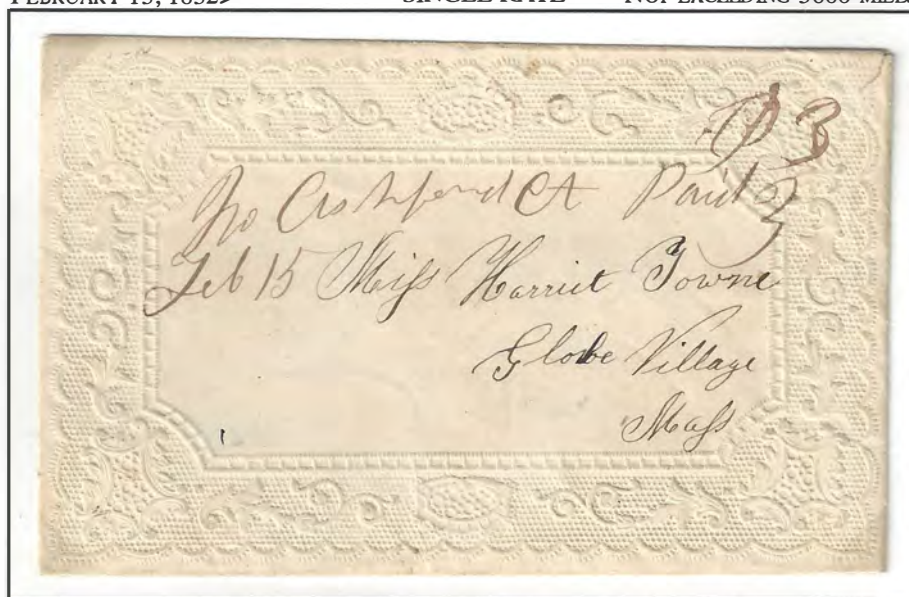 P 3
No Ashford Ct Paid 3
Feb 15 Miss Harriet Towne
Globe Village
Mass